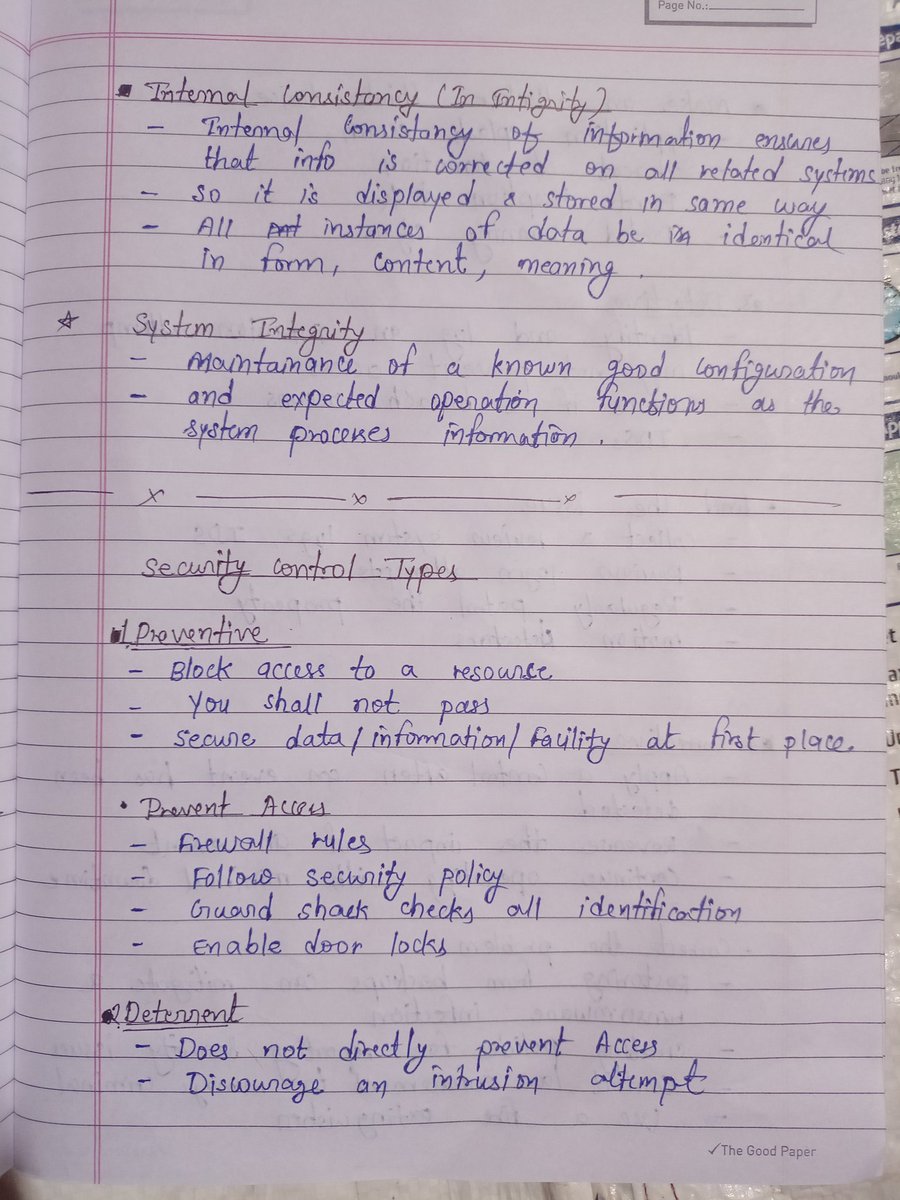 Page No.:
▪ Internal Consistancy (In Intignity)
- Internal Consistancy of information ensures
that info is corrected on all related systems
- so it is displayed & stored in same way
- All instances of data be in identical
in form, content, meaning.
☆ System Integrity
- maintainance of a known good configuration
- and expected operation functions as the
system processes information.
x x x
Security Control Types
1. Preventive
- Block access to a resource
- You shall not pass
- secure data/information/Facility at first place.
• Prevent Access
- Firewall rules
- Follow security policy
- Guard shack checks all identification
- Enable door locks
2. Deterrent
- Does not directly prevent Access
- Discourage an intrusion attempt
✓The Good Paper